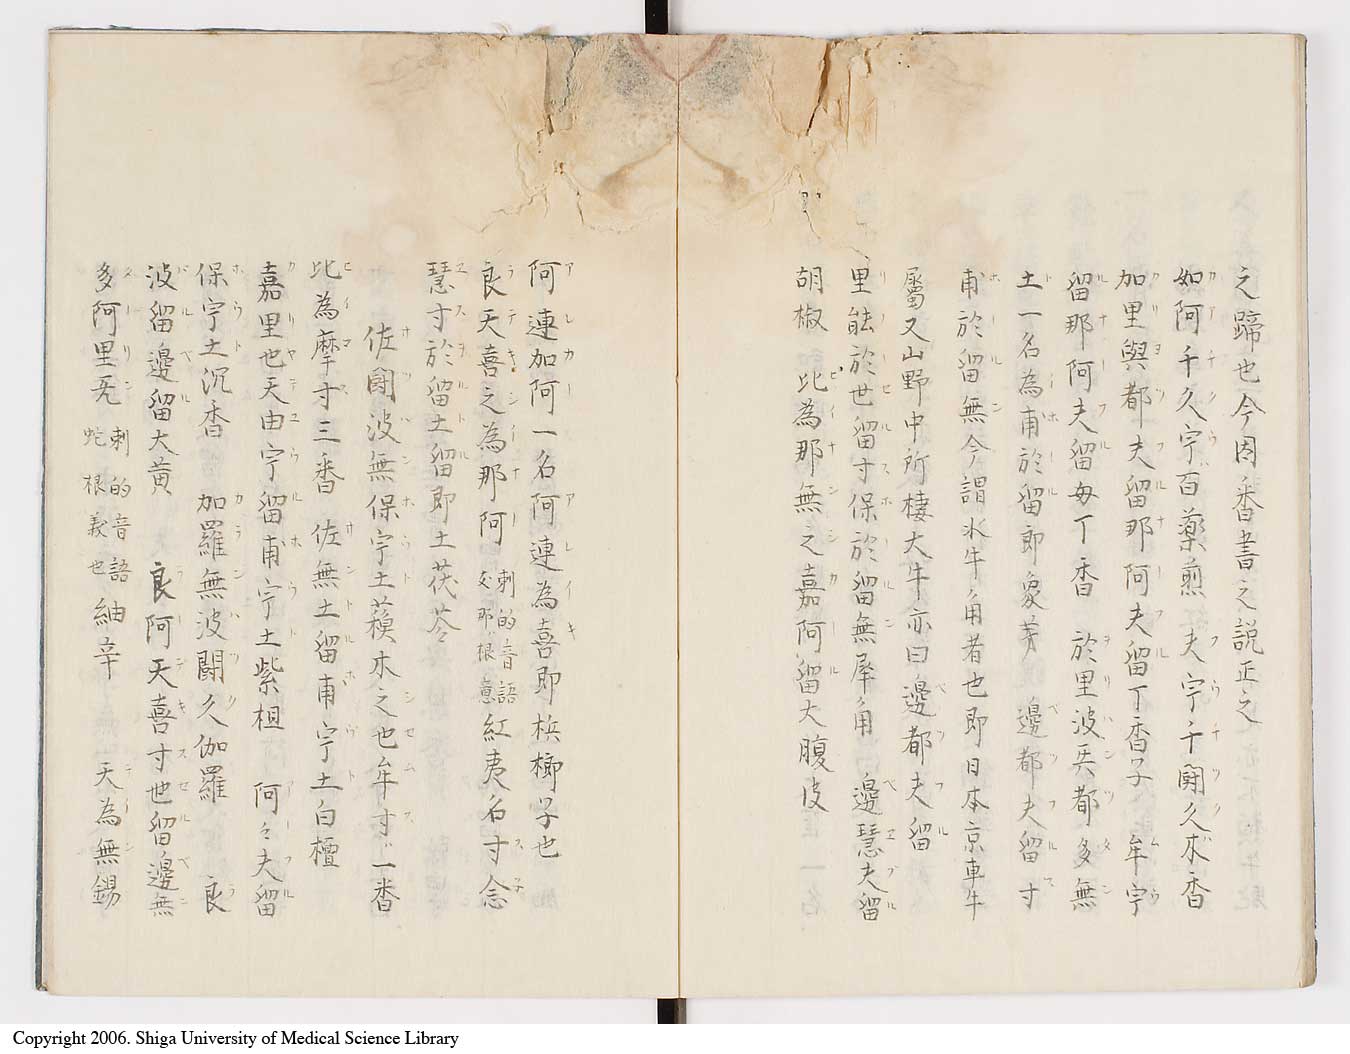 之蹄也今因番書之説正之
如阿千久宇百藥煎 夫宇千闕久木香
加里與都夫留那阿夫留丁香子 牟宇
留那阿夫留毋丁香 於里波兵都多無
土一名為甫於留即象芽 邊都夫留寸
甫於留無今謂水牛角者也即日本京車牛
屬又山野中所棲大牛亦曰邊都夫留
里能於世留寸保於留無犀角 邊慧夫留
胡椒 比為那無之嘉阿留大腹皮
阿連加阿一名阿連為喜即梹榔子也
良天喜之為那阿 刺的音語 紅夷名寸念
慧寸於留土留即土茯苓
佐闕波無保宇土蘓木之也牟寸一番
比為摩寸三番 佐無土留甫宇土白檀
嘉里也天由宇留甫宇土紫柤 阿々夫留
保宇土沉香 加羅無波闕久伽羅 良
波留邊留大黄 良阿天喜寸世留邊無
多阿里旡 刺的音語蛇根義也 紬辛 天為無錫
Copyright 2006. Shiga University of Medical Science Library